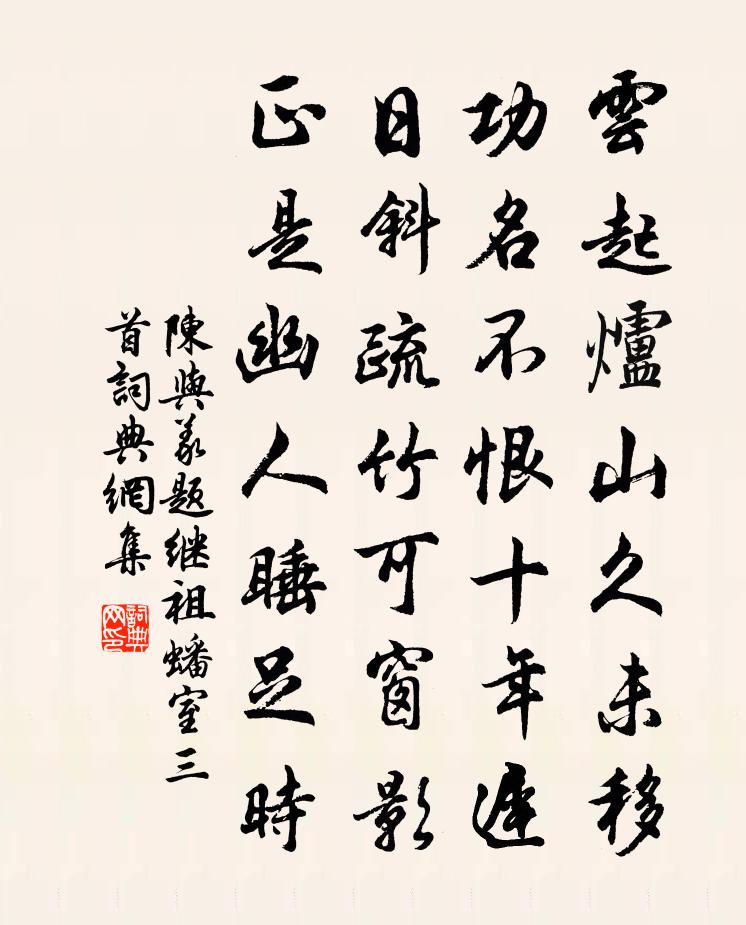 雲起爐山久未移
功名不恨十年遲
日斜疏竹可窗影
正是幽人睡足時
陳與義題継祖蟠室三
首詞典網集
詞典網印